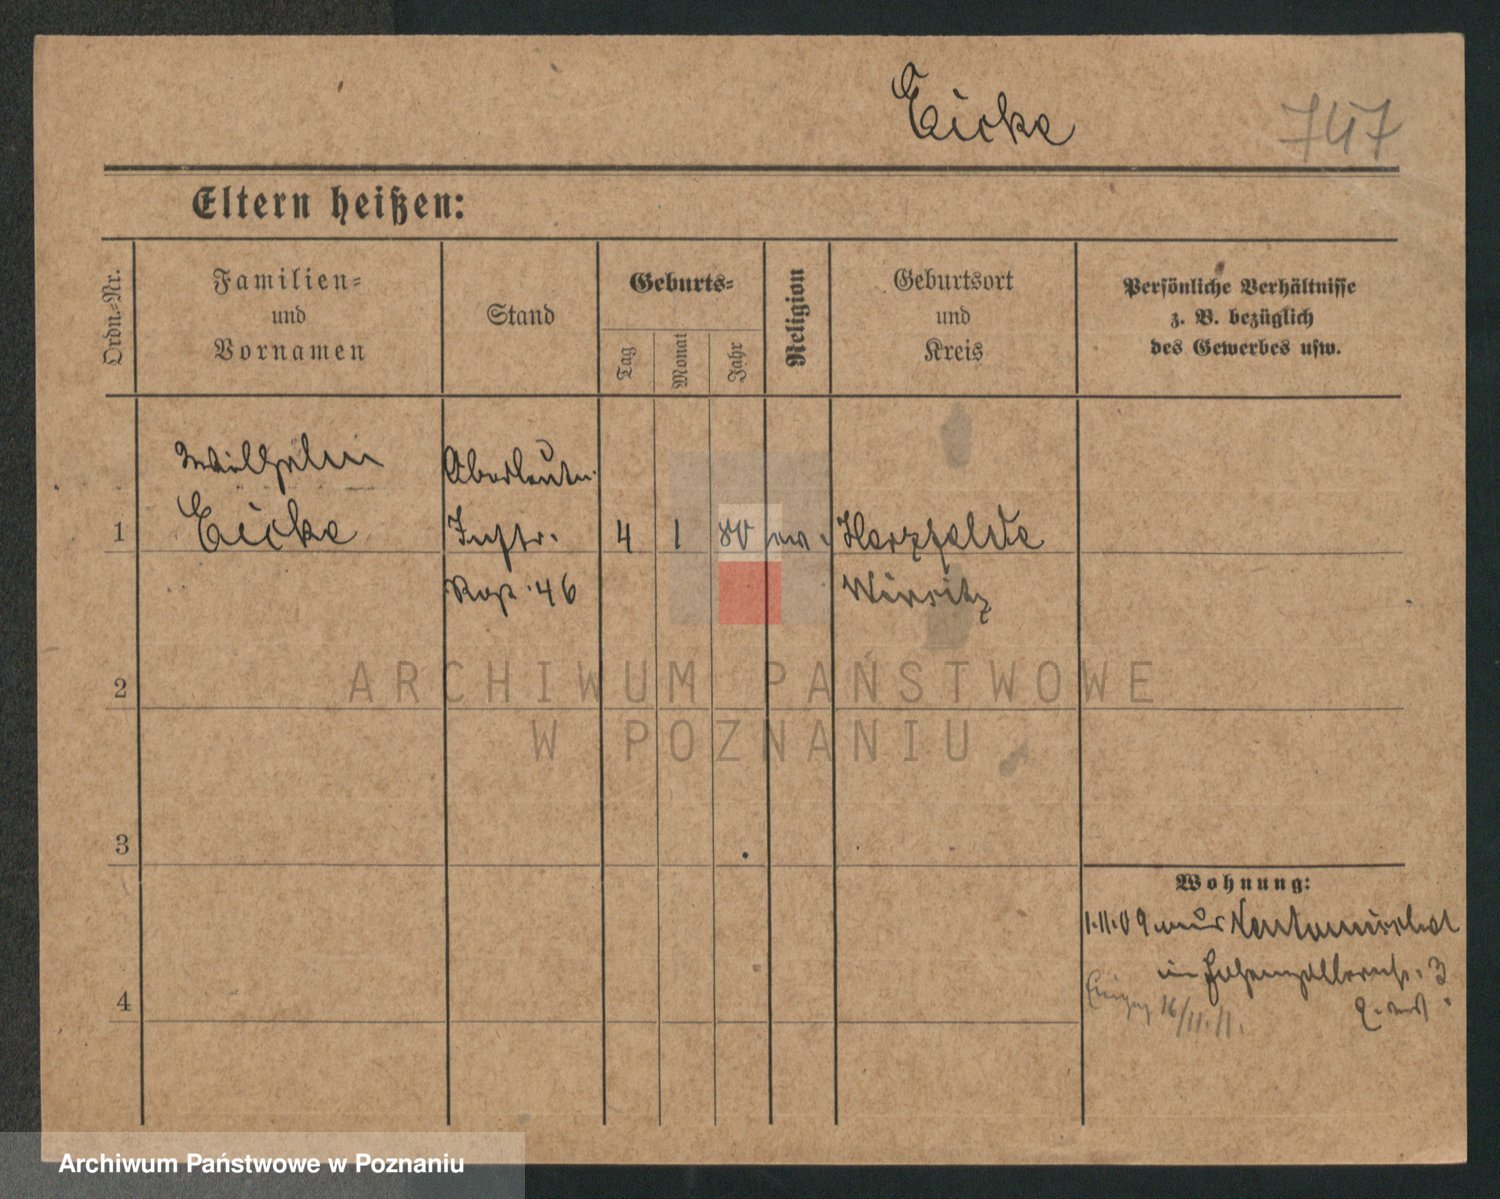 Eicke
747
Eltern heißen:
Ordn.-Nr.
Familien-
und
Vornamen
Stand
Geburts-
Tag
Monat
Jahr
Religion
Geburtsort
und
Kreis
Persönliche Verhältnisse
z. B. bezüglich
des Gewerbes usw.
Wilhelm
Eicke
Oberleutn.
Inftr.
Regt. 46
1
4
1
80
ev.
Herzfelde
Wirsitz
2
ARCHIWUM PAŃSTWOWE
W POZNANIU
3
4
Wohnung:
1.11.09
in Hohenzollernst. 3
16/11.11.
Archiwum Państwowe w Poznaniu